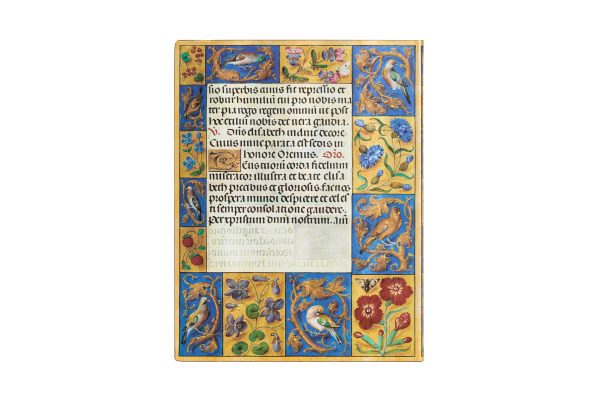 sio superbis cuius fit repressio et
robur humiliũ tui pro nobis ma
ter pia rogo regem omniũ ut post
hoc exiliũ nobis det vera gaudia.
V. Dñs elisabeth induit decore
Cuius nunc parata est sedis in
honore Oremus. Oro.
Tuorum corda fidelium
miserator illustra et beate elisa
beth precibus et gloriosis. fac nos
prospera mundi despicere et celes
ti semper consolatione gaudere.
Per xpristum dñm nostrum. am